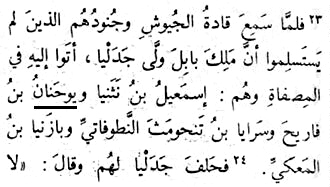 ٢٣ فلمَّا سَمِعَ قادةُ الجُيوشِ وجُنودُهُم الذينَ لم
يَستَسلِموا أنَّ مَلِكَ بابِلَ ولَّى جَدَلْيا، أتَوا إليهِ في
المِصفاةِ وهُم: إسمَعيلُ بنُ نَثَنيا ويوحَنانُ بنُ
قاريحَ وسَرايا بنُ تَنحومَثَ النَّطوفاتيِّ ويازَنيا بنُ
المَعكيِّ. ٢٤ فحَلفَ جَدَلْيا لهُم وقالَ: «لا